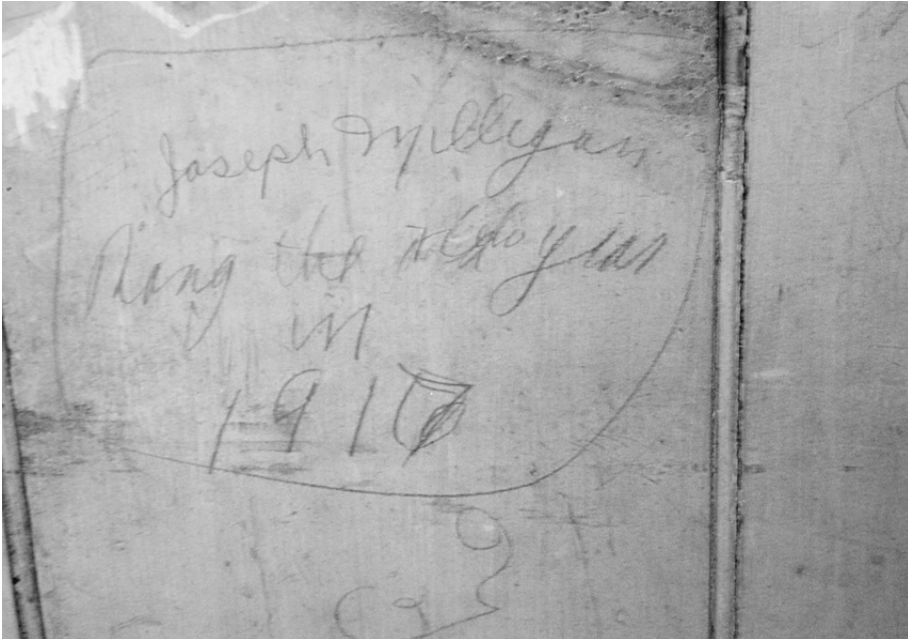 Joseph Milligan
Rang the new year
in
1917